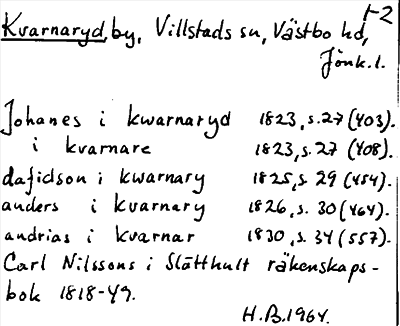 1-2
Kvarnaryd, by, Villstads sn, Västbo hd,
Jönk. l.
Johanes i kwarnaryd 1823, s. 27 (403).
i kvarnare 1823, s. 27 (408).
dafidson i kwarnary 1825, s. 29 (454).
anders i kvarnary 1826, s. 30 (464).
andrias i kvarnar 1830, s. 34 (557).
Carl Nilssons i Slätthult räkenskaps-
bok 1818-49.
H.B. 1964.